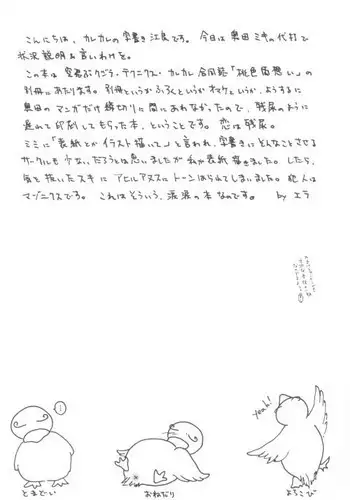 こんにちは、カレカレの字書き江良です。今日は奥田ミキの代打で
状況説明&言いわけを。
この本は空君ぶクゴラ・テクニクス・カレカレ合同誌「桃色固想い」の
別冊にあたります。別冊というかふろくというかオマケというか、ようするに
奥田のマンガだけ締切りに間にあわなかったので、残尿のように
遅れて印刷してもらった本、ということです。恋は残尿。
ミミに「表紙とかイラスト描いて」と言われ、字書きにどんなことさせる
サークルも少ないだろうとは思いましたが私が表紙描きました。したら、
気を抜いたスキにアヒルアヌスにトーンはられてしまいました。犯人は
マゾニクスです。これはそういう、涙涙の本なのです。 by エラ
!
yeah!
とまどい
おねだり
よろこび